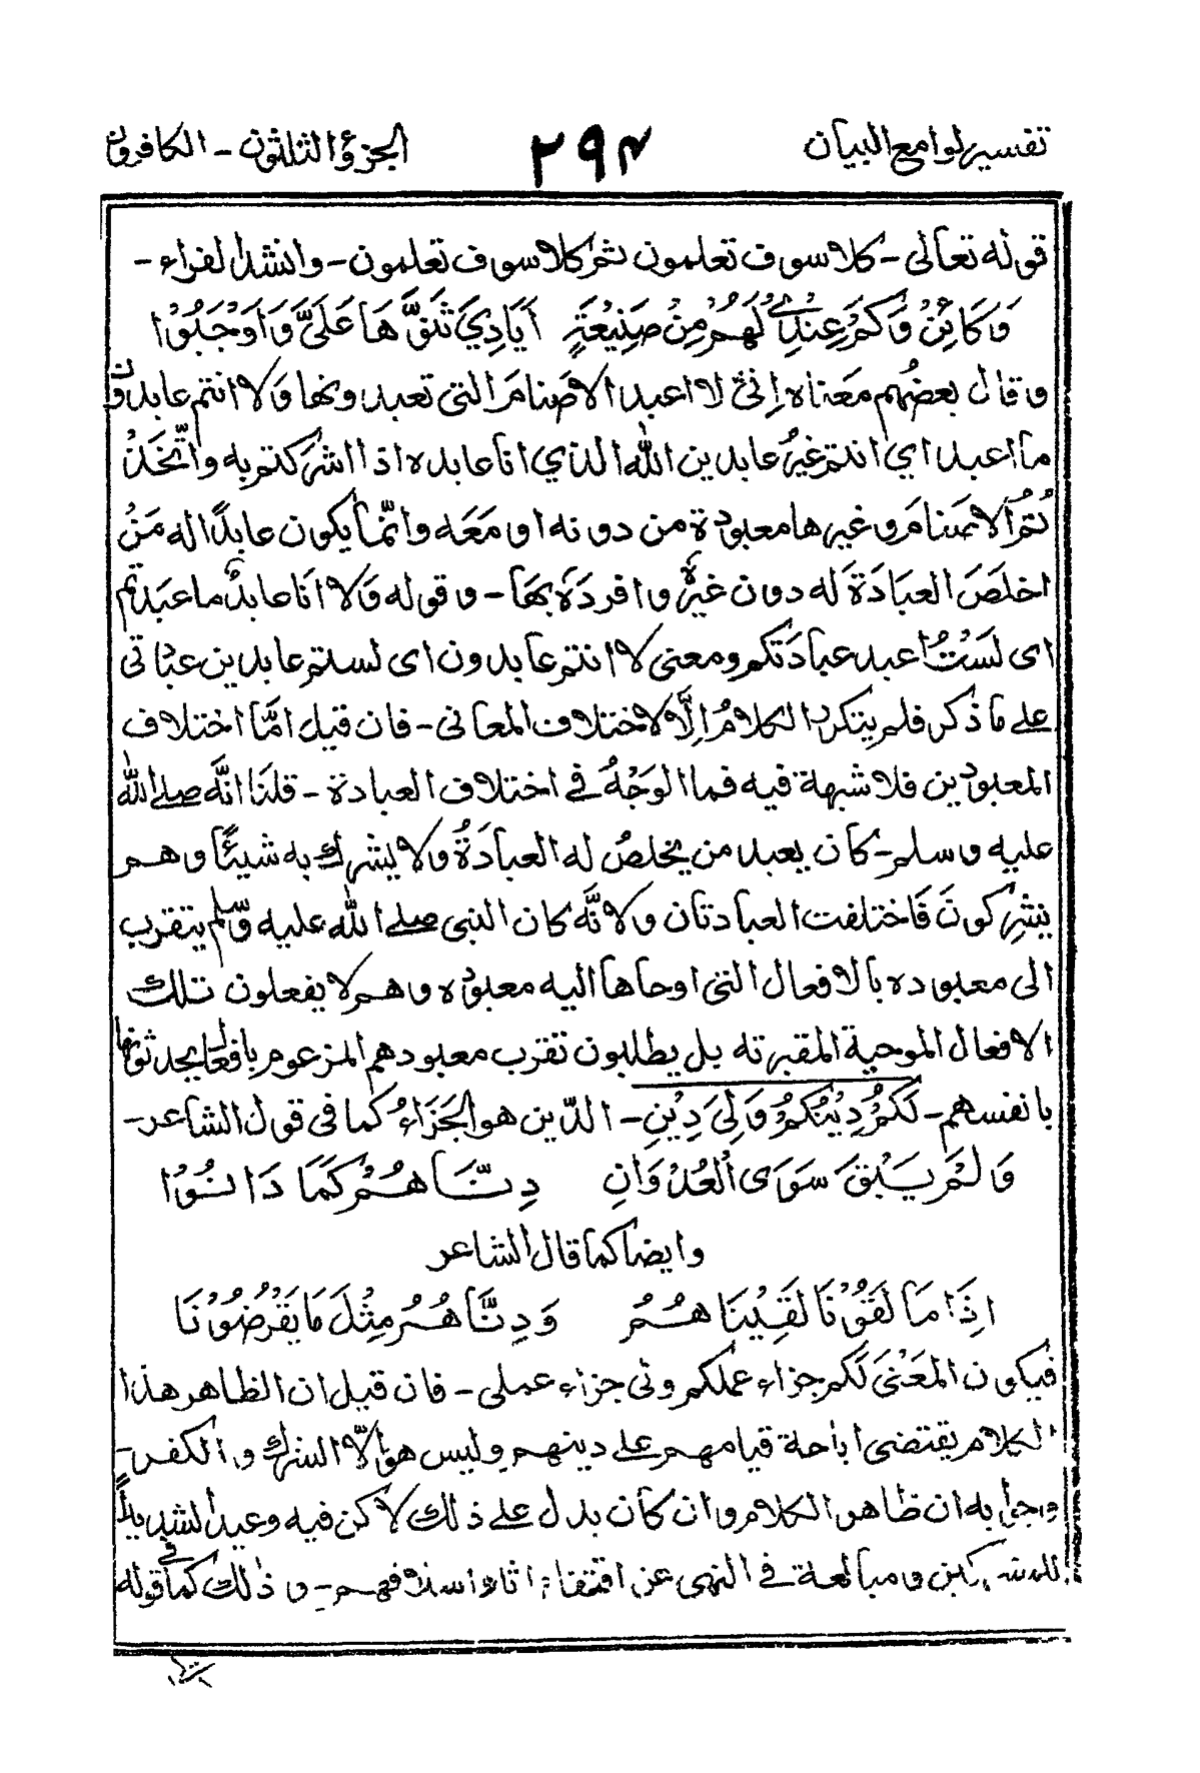 تفسير لوامع البيان ٢٩٤ الجزؤ الثلثون - الكافرون
قوله تعالى - كلا سوف تعلمون ثم كلا سوف تعلمون - وانشد الفراء -
وَكَائِنْ وَكَمْ عِنْدِيْ لَهُمْ مِنْ صَنِيْعَةٍ اَيَادِيَ ثَنَوَّهَا عَلَىَّ وَاَوْجَبُوْا
وقال بعضهم معناه اِنّي لا اعبد الاصنامَ التى تعبدونها وَلا انتم عابدون
ما اعبد اي انتم غيرُ عابدين الله الذي انا عابده اذا اشركتم به واتّخَذْ
تُمُ الاصنامَ وغيرها معبودة من دونه او مَعَه وانّما يكون عابدًا له مَنْ
اخلَصَ العبَادَةَ له دون غيرِه وافردَهٗ بهَا - وقوله وَلا انَا عابدٌ ما عبَدتم
اى لَسْتُ اعبد عبادَتكم ومعنى لا انتم عابدون اى لستم عابدين عبادتى
على ما ذكر فلم يتكرر الكلامُ اِلَّا لاختلاف المعانى - فان قيل امّا اختلاف
المعبودين فلا شبهة فيه فما الوَجْهُ في اختلاف العبادة - قلنَا انَّه صلے الله
عليه وسلم - كان يعبد من يخلصُ له العبَادَةُ ولا يشرك به شيئًا وهم
يشرِكونَ فَاختلفت العبادتان ولانَّه كان النبى صلے الله عليه وسّلم يتقرب
الى معبوده بالافعال التى اوحاها اليه معبوده وهم لا يفعلون تلك
الافعال الموحية المقبرته بل يطلبون تقرب معبودهم المزعوم بافعال يحدثونها
بانفسهم - لَكُمْ دِيْنُكُمْ وَلِىَ دِيْنِ - الدّين هو الجَزَاءُ كما فى قول الشاعر -
وَلَمْ يَبْقَ سَوَى الْعُدْوَانِ دِنَّاهُمْ كَمَا دَانُوْا
وايضا كما قال الشاعر
اِذَا مَا لَقَوْنَا لَقِيْنَاهُمُ وَدِنَّاهُمُ مِثْلَ مَا يَقْرَضُوْنَا
فيكون المَعْنىٰ لَكم جزاء عملكم ولى جزاء عملى - فان قيل ان الظاهر هذا
الكلام يقتضى اباحة قيامهم على دينهم وليس هو الّا الشرك و الكفر -
وجوابه ان ظاهر الكلام وان كان يدل على ذلك لاكن فيه وعيدا شديدًا
للمشركين ومبالغة في النهى عن اقتفاء اثار اسلافهم - و ذلك كما في قوله